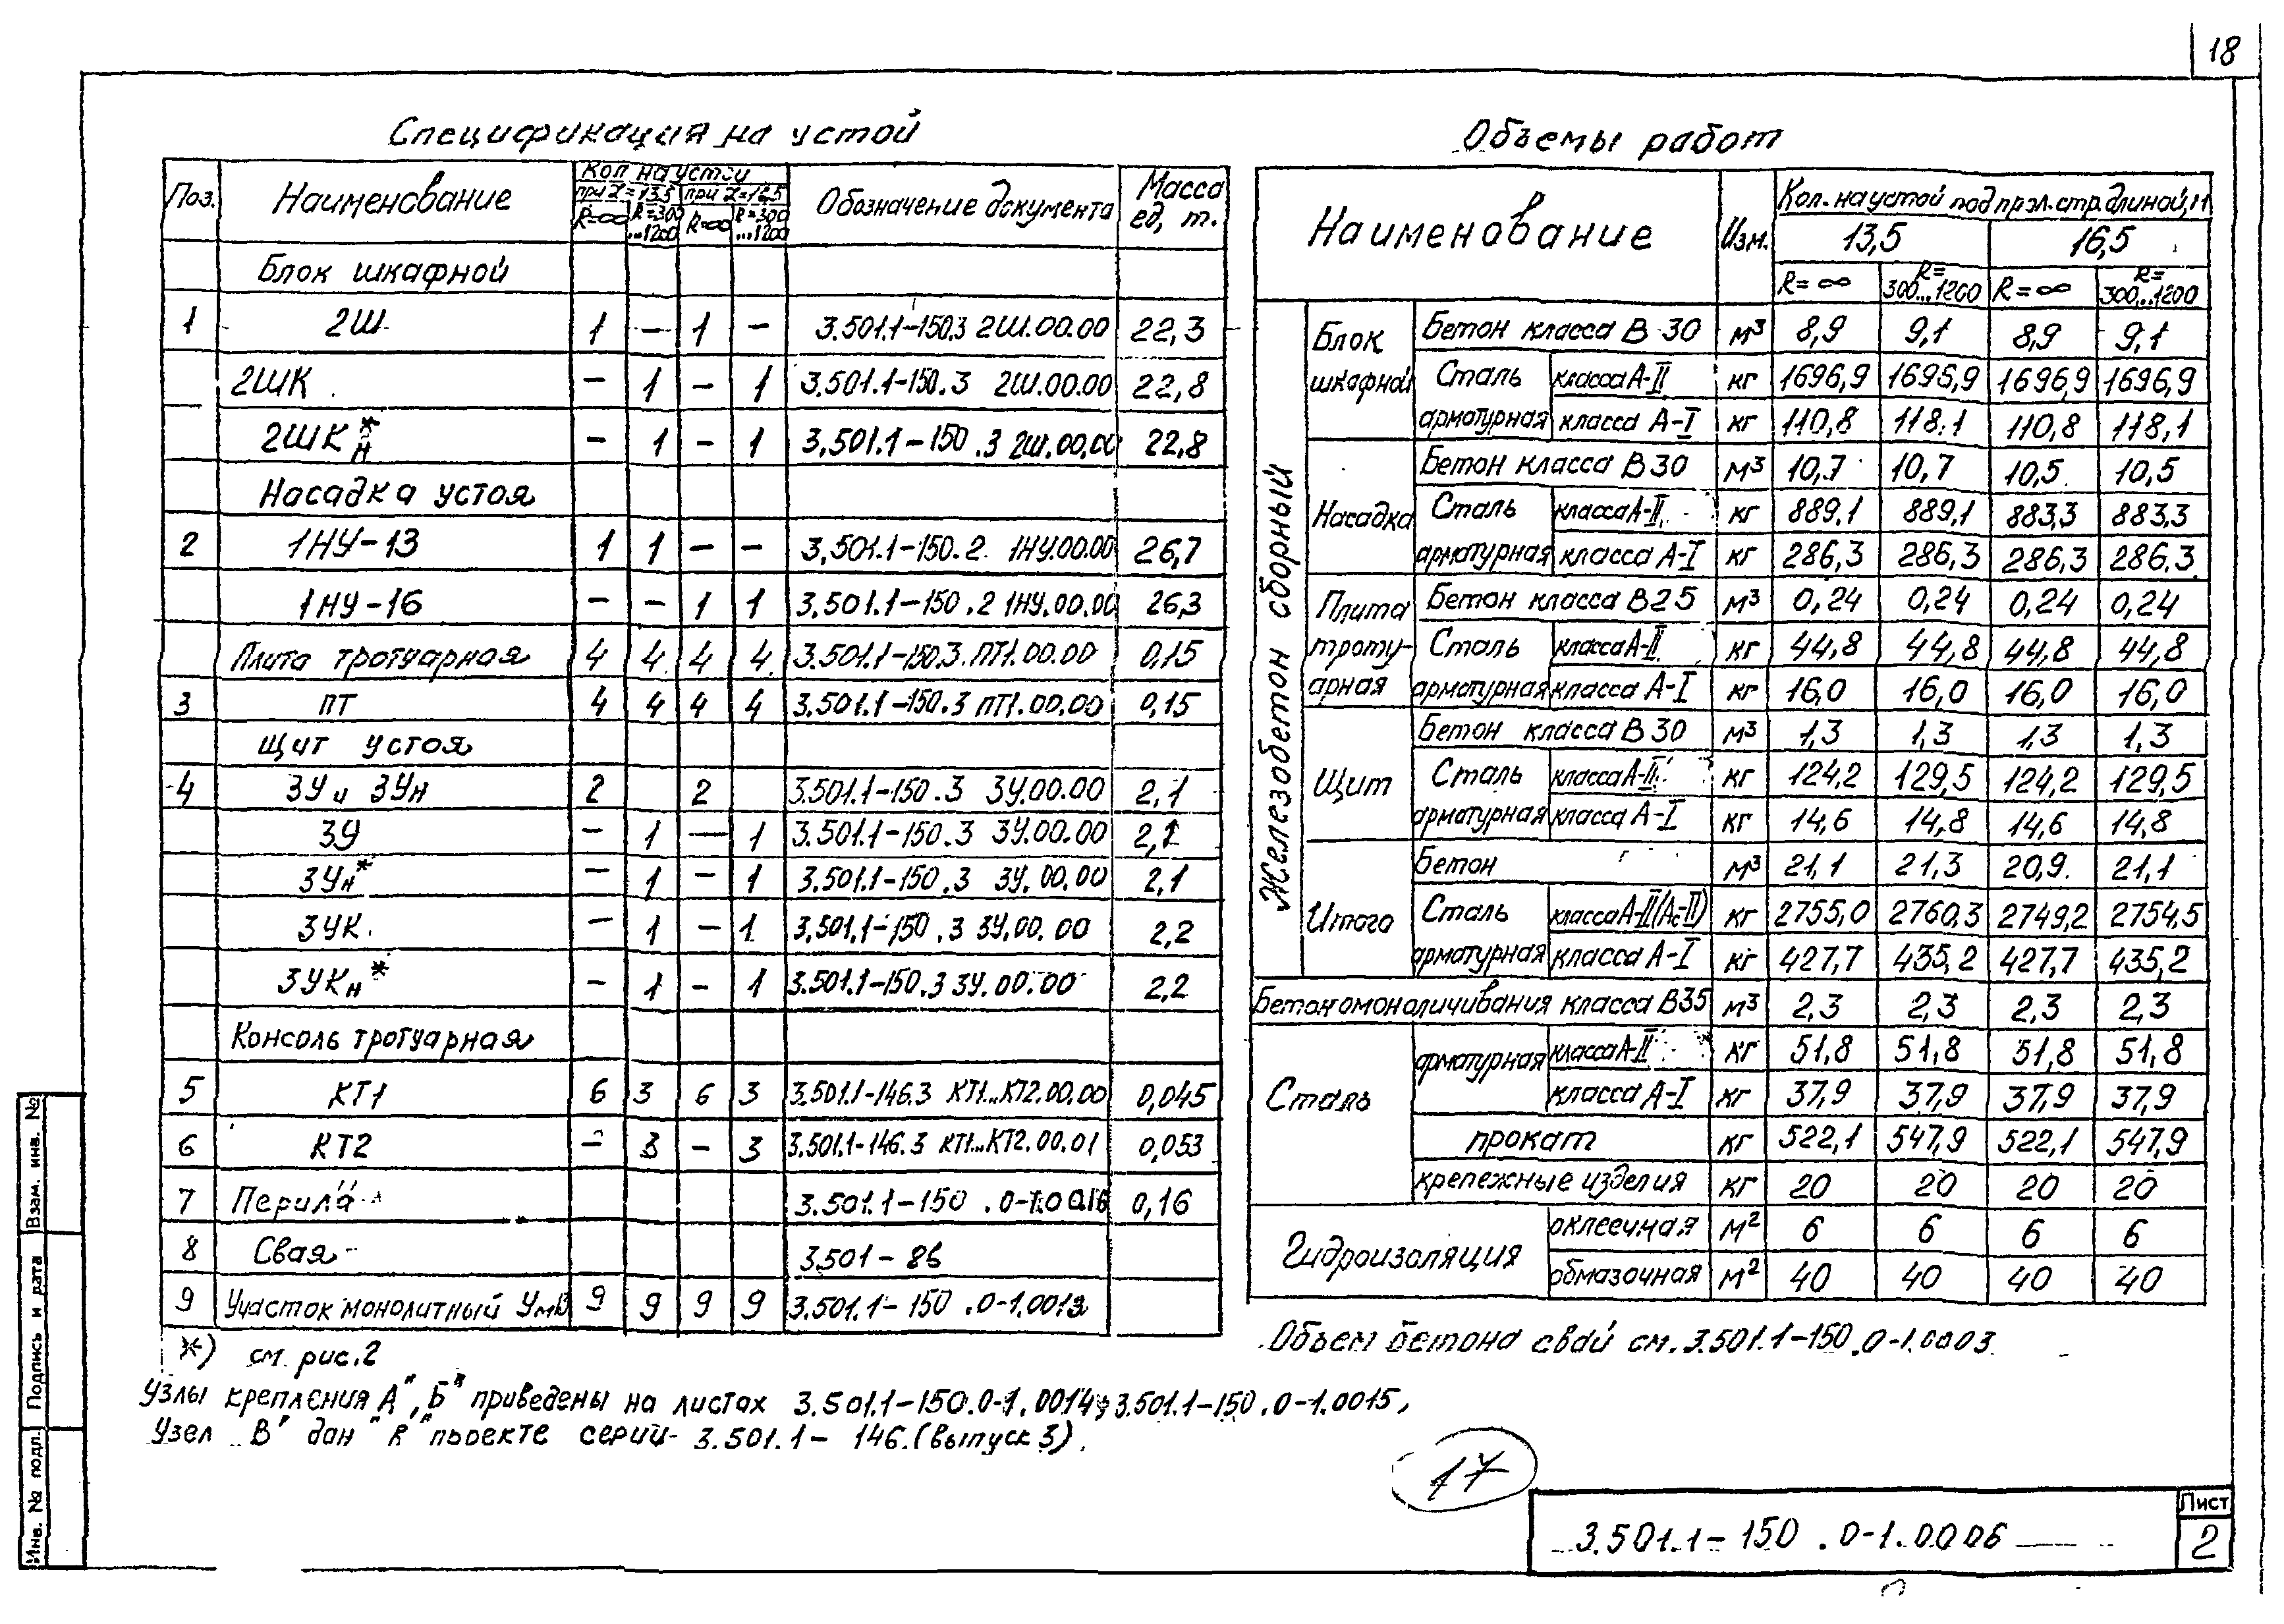 18
Спецификация на устой
Поз. Наименование Кол на устой Обозначение документа Масса ед, т.
при L=13,5 при L=16,5
R=∞ R=300...1200 R=∞ R=300...1200
Блок шкафной
1 2Ш 1 – 1 – 3.501.1-150.3 2Ш.00.00 22,3
2ШК – 1 – 1 3.501.1-150.3 2Ш.00.00 22,8
2ШКн* – 1 – 1 3.501.1-150.3 2Ш.00.00 22,8
Насадка устоя
2 1НУ-13 1 1 – – 3.501.1-150.2 1НУ.00.00 26,7
1НУ-16 – – 1 1 3.501.1-150.2 1НУ.00.00 26,3
Плита тротуарная 4 4 4 4 3.501.1-150.3.ПТ1.00.00 0,15
3 ПТ 4 4 4 4 3.501.1-150.3 ПТ1.00.00 0,15
Щит устоя
4 3У и 3Ун 2 2 3.501.1-150.3 3У.00.00 2,1
3У – 1 – 1 3.501.1-150.3 3У.00.00 2,1
3Ун* – 1 – 1 3.501.1-150.3 3У.00.00 2,1
3УК – 1 – 1 3.501.1-150.3 3У.00.00 2,2
3УКн* – 1 – 1 3.501.1-150.3 3У.00.00 2,2
Консоль тротуарная
5 КТ1 6 3 6 3 3.501.1-146.3 КТ1...КТ2.00.00 0,045
6 КТ2 – 3 – 3 3.501.1-146.3 КТ1...КТ2.00.01 0,053
7 Перила 3.501.1-150.0-1.0016 0,16
8 Свая 3.501-86
9 Участок монолитный 9 9 9 9 3.501.1-150.0-1.0013
*) см. рис.2
Узлы крепления А", Б" приведены на листах 3.501.1-150.0-1.0014; 3.501.1-150.0-1.0015,
Узел "В" дан в проекте серии 3.501.1-146.(выпуск 3).
Объемы работ
Наименование Изм. Кол. на устой под прол.стр.длиной,м
13,5 16,5
R=∞ R=300...1200 R=∞ R=300...1200
Железобетон сборный
Блок шкафной Бетон класса В30 м³ 8,9 9,1 8,9 9,1
Сталь арматурная класса А-II кг 1696,9 1696,9 1696,9 1696,9
класса А-I кг 110,8 118,1 110,8 118,1
Насадка Бетон класса В30 м³ 10,7 10,7 10,5 10,5
Сталь арматурная класса А-II кг 889,1 889,1 883,3 883,3
класса А-I кг 286,3 286,3 286,3 286,3
Плита тротуарная Бетон класса В25 м³ 0,24 0,24 0,24 0,24
Сталь арматурная класса А-II кг 44,8 44,8 44,8 44,8
класса А-I кг 16,0 16,0 16,0 16,0
Щит Бетон класса В30 м³ 1,3 1,3 1,3 1,3
Сталь арматурная класса А-II кг 124,2 129,5 124,2 129,5
класса А-I кг 14,6 14,8 14,6 14,8
Итого Бетон м³ 21,1 21,3 20,9 21,1
Сталь арматурная класса А-II(Ас-II) кг 2755,0 2760,3 2749,2 2754,5
класса А-I кг 427,7 435,2 427,7 435,2
Бетон омоноличивания класса В35 м³ 2,3 2,3 2,3 2,3
Сталь арматурная класса А-II кг 51,8 51,8 51,8 51,8
класса А-I кг 37,9 37,9 37,9 37,9
прокат кг 522,1 547,9 522,1 547,9
крепежные изделия кг 20 20 20 20
Гидроизоляция оклеечная м² 6 6 6 6
обмазочная м² 40 40 40 40
Объем бетона свай см. 3.501.1-150.0-1.0003
17
3.501.1-150.0-1.0006
Лист
2
Взам. инв. №
Подпись и дата
Инв. № подл.